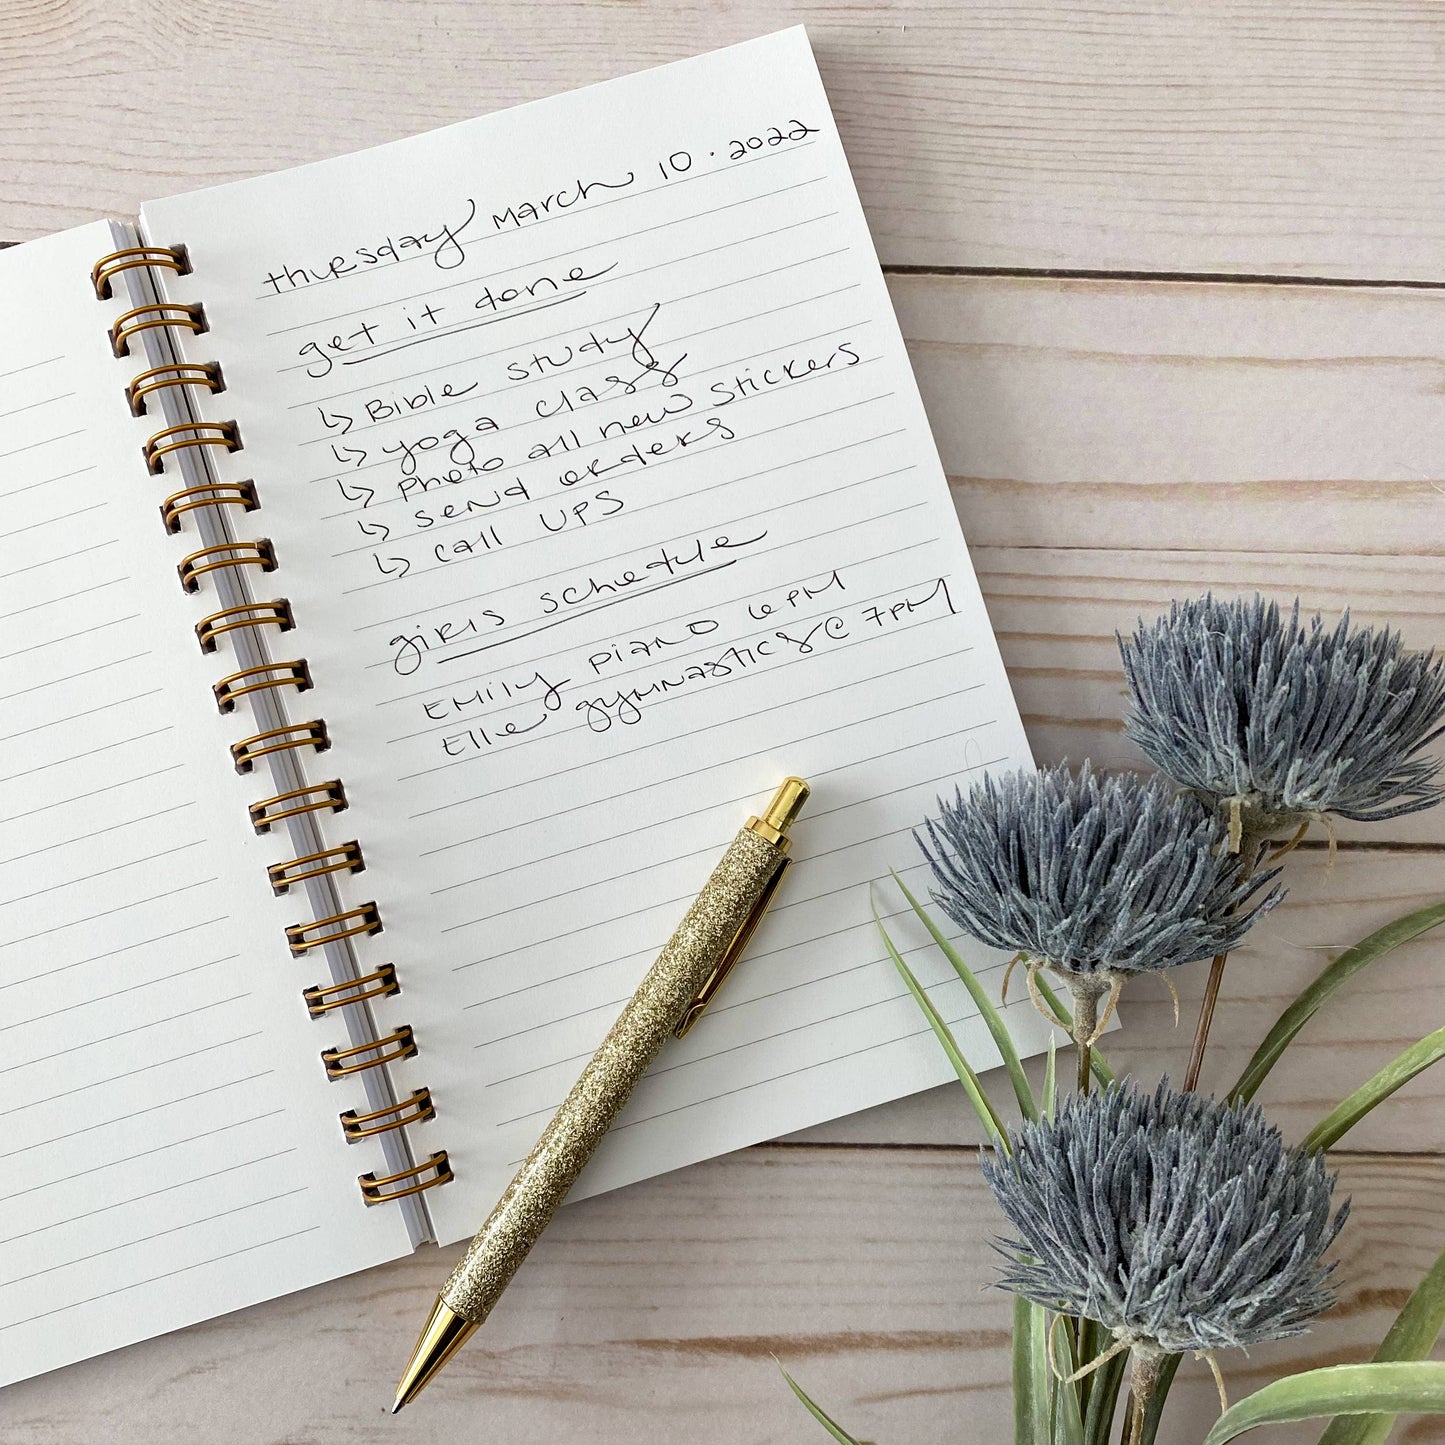 thursday March 10 · 2022
get it done
↳ Bible study
↳ yoga class
↳ photo all new stickers
↳ send orders
↳ call UPS
girls schedule
Emily piano 6 PM
Elle gymnastics @ 7PM